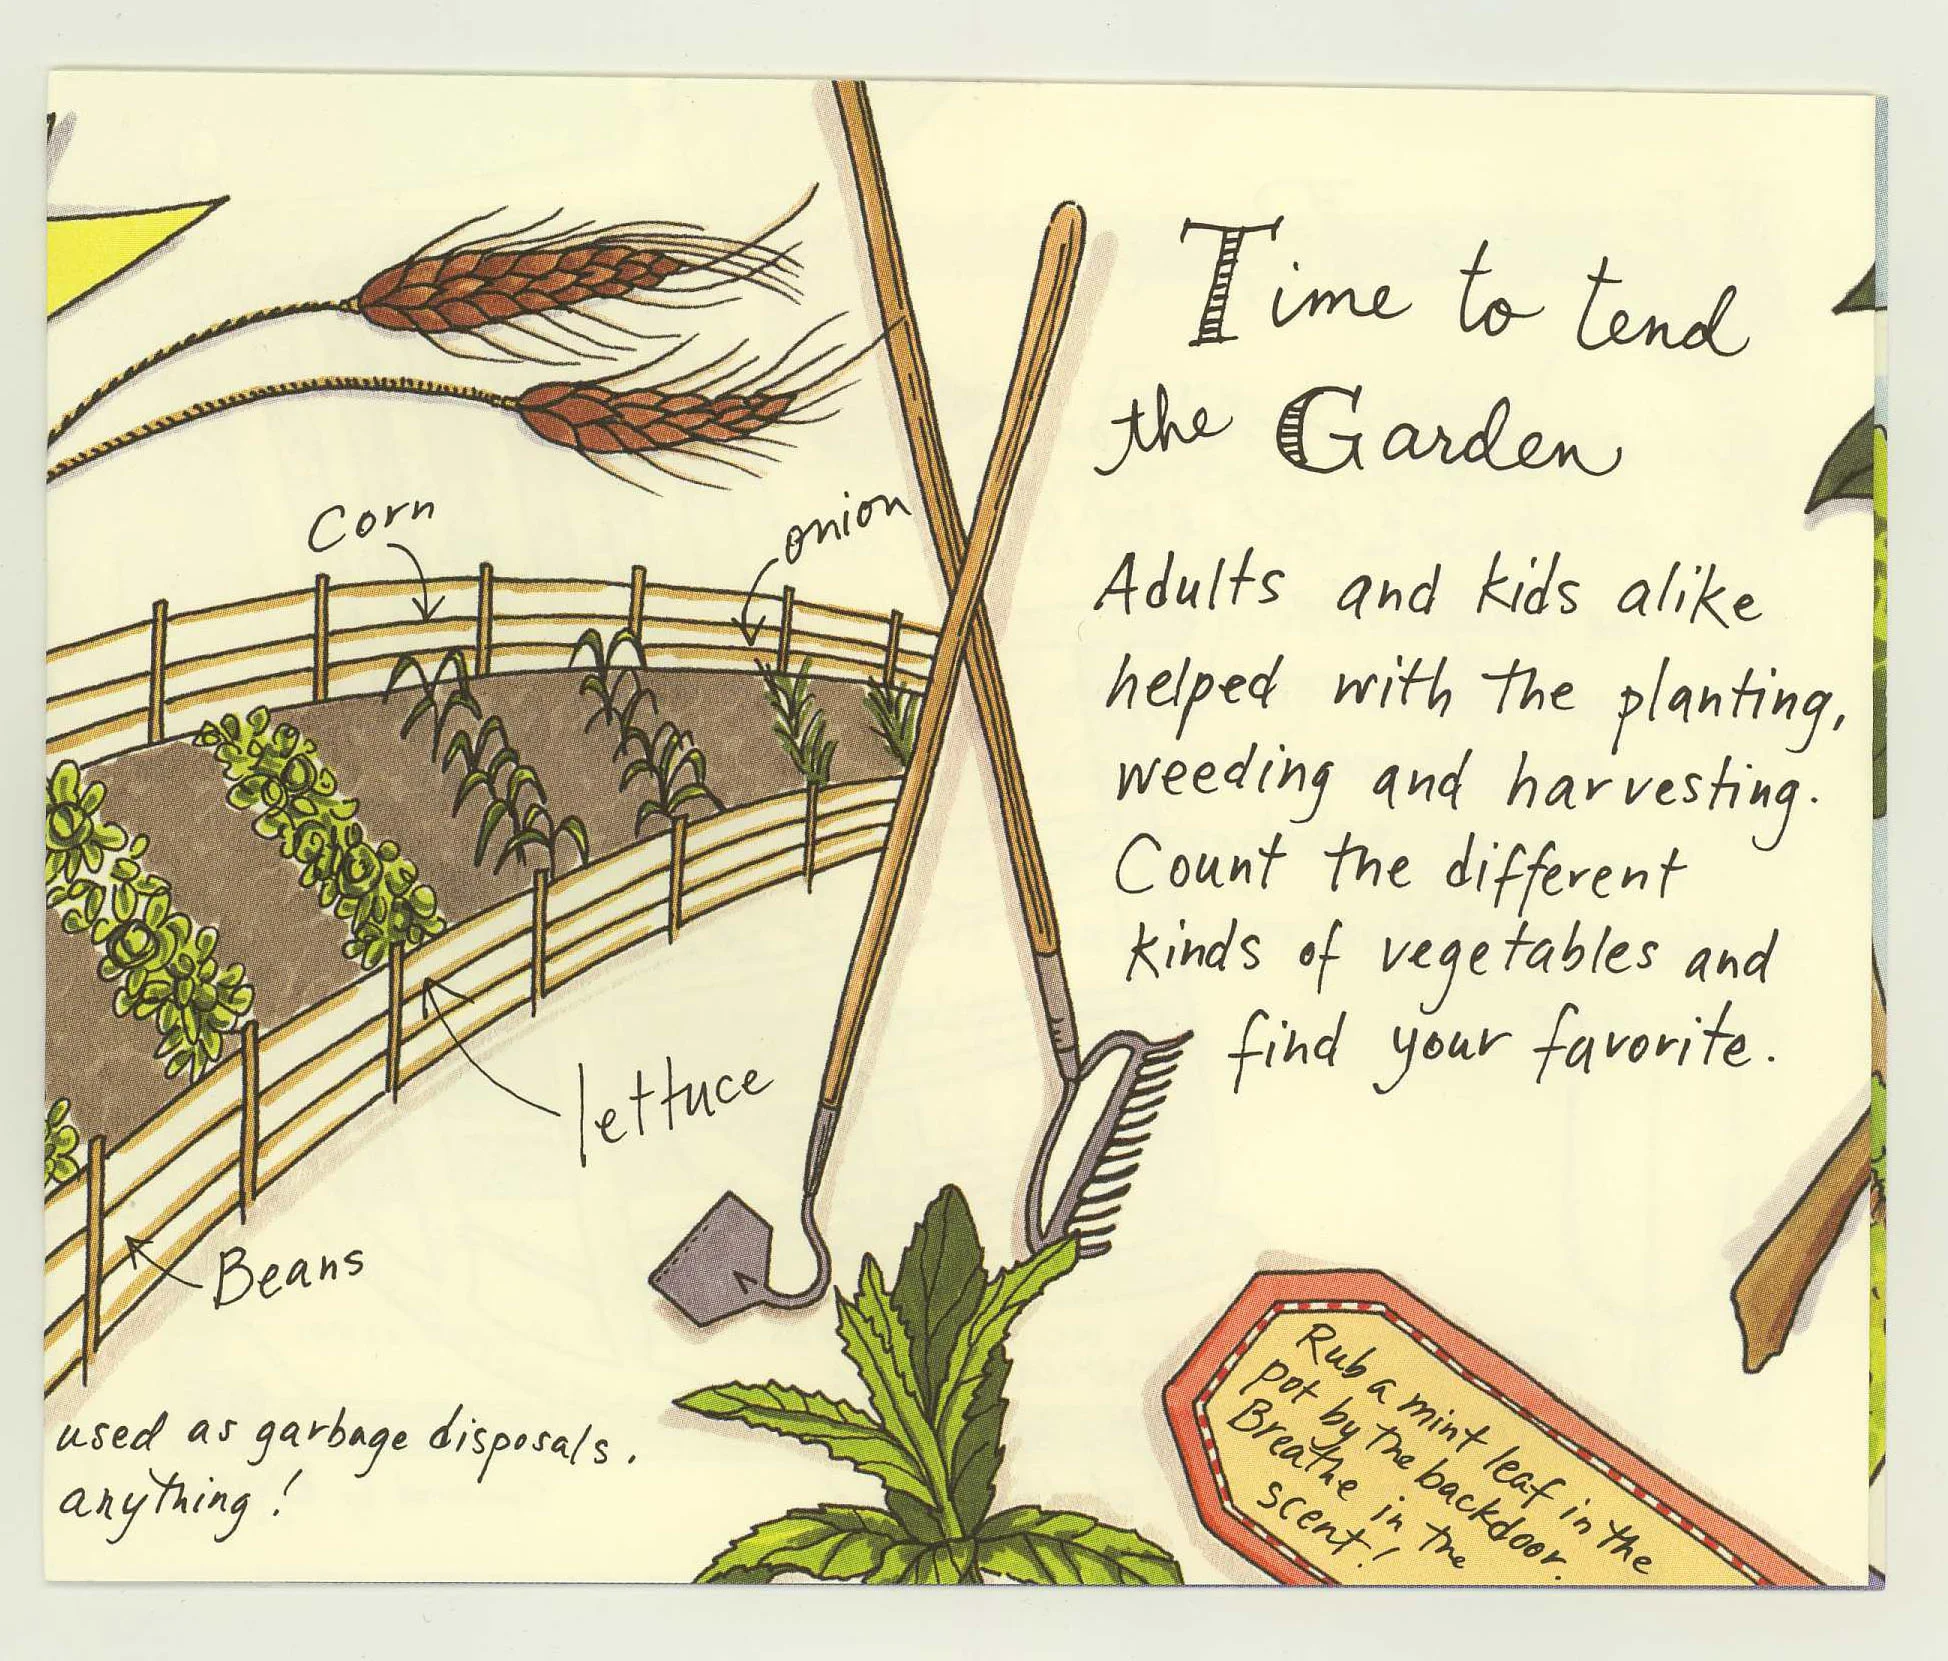 Time to tend
the Garden
Adults and kids alike
helped with the planting,
weeding and harvesting.
Count the different
kinds of vegetables and
find your favorite.
Corn
onion
lettuce
Beans
used as garbage disposals.
anything!
Rub a mint leaf in the
pot by the backdoor.
Breathe in the
scent!